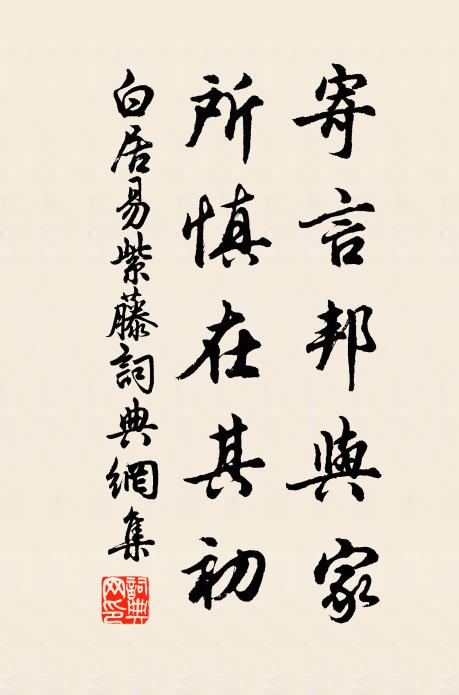 寄言邦與家
所慎在其初
白居易紫藤詞典網集
詞典網印